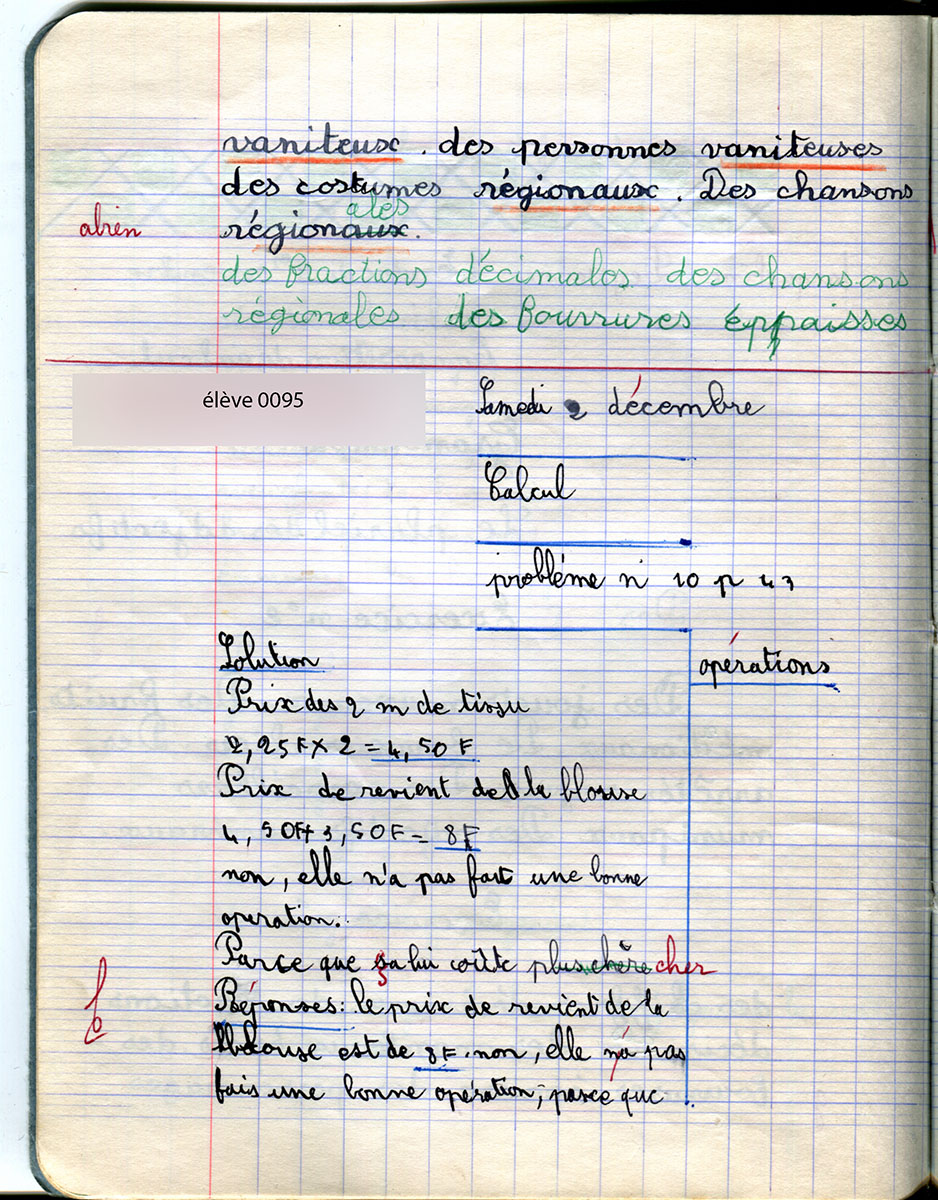 vaniteux. des personnes vaniteuses
des costumes régionaux. Des chansons
ales
abien régionaux.
des fractions décimales des chansons
régionales des fourrures éppaisses
élève 0095
Samedi 2 décembre
Calcul
probléme n° 10 p 43
Solution
opérations
Prix des 2 m de tissu
2,25F x 2 = 4,50 F
Prix de revient de la blouse
4,50F+3,50F = 8F
non, elle n'a pas fait une bonne
operation.
Parce que ça lui coûte plus chère cher
Réponses: le prix de revient de la
blouse est de 8F. non, elle n'a pas
fais une bonne opération; parce que